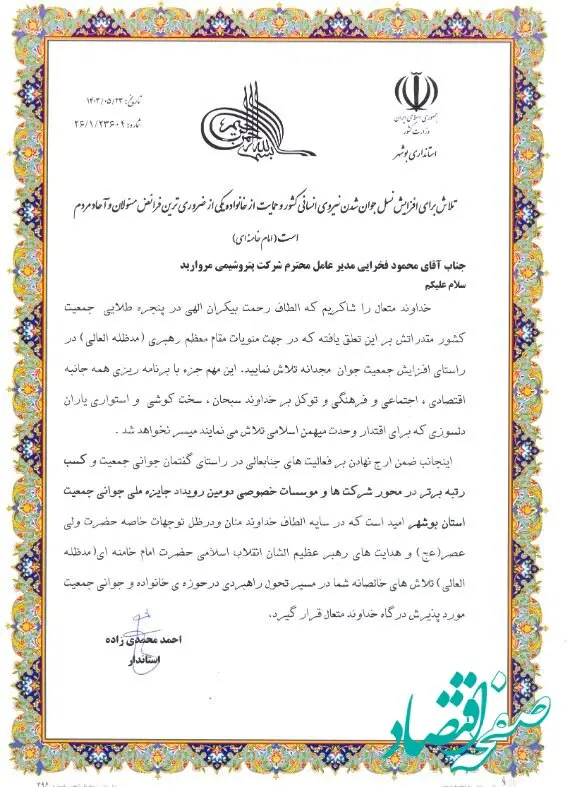 جمهوری اسلامی ایران
وزارت کشور
استانداری بوشهر
بسم الله الرحمن الرحیم
تاریخ: ۱۴۰۳/۰۵/۲۳
شماره: ۲۶/۱/۲۳۶۰۴
تلاش برای افزایش نسل جوان شدن نیروی انسانی کشور و حمایت از خانواده یکی از ضروری ترین فرائض مسئولان و آحاد مردم
است (امام خامنه ای)
جناب آقای محمود فخرایی مدیر عامل محترم شرکت پتروشیمی مروارید
سلام علیکم
خداوند متعال را شاکریم که الطاف رحمت بیکران الهی در پنجره طلایی جمعیت
کشور مقدراتش بر این تعلق یافته که در جهت منویات مقام معظم رهبری (مدظله العالی) در
راستای افزایش جمعیت جوان مجدانه تلاش نمایید. این مهم جزء با برنامه ریزی همه جانبه
اقتصادی ، اجتماعی و فرهنگی و توکل بر خداوند سبحان ، سخت کوشی و استواری یاران
دلسوزی که برای اقتدار وحدت میهمن اسلامی تلاش می نمایند میسر نخواهد شد .
اینجانب ضمن ارج نهادن بر فعالیت های جنابعالی در راستای گفتمان جوانی جمعیت و کسب
رتبه برتر در محور شرکت ها و موسسات خصوصی دومین رویداد جایزه ملی جوانی جمعیت
استان بوشهر امید است که در سایه الطاف خداوند منان ودرظل توجهات خاصه حضرت ولی
عصر(عج) و هدایت های رهبر عظیم الشان انقلاب اسلامی حضرت امام خامنه ای(مدظله
العالی) تلاش های خالصانه شما در مسیر تحول راهبردی درحوزه ی خانواده و جوانی جمعیت
مورد پذیرش درگاه خداوند متعال قرار گیرد.
احمد محمدی زاده
استاندار
صفحه اقتصاد